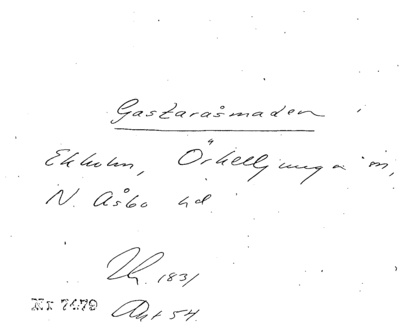 Gastaråsmaden
Ekholm, Örkelljunga sn,
N. Åsbo hd
1831
Nr 7479 Akt 54.